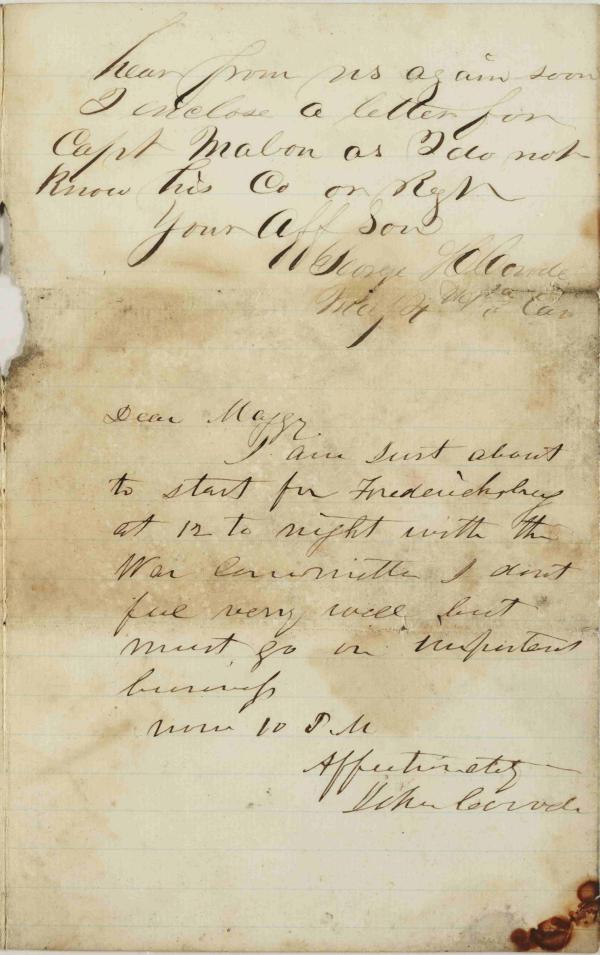 hear from us again soon
I enclose a letter for
Capt Mabon as I do not
Know his Co or Regt
Your Aff Son
George H Covode
Maj 4 Pa Cav
Dear Maggy
I am just about
to start for Fredericksburg
at 12 to night with the
War Committee I dont
feel very well but
must go on important
business
now 10 P.M
Affectionately
John Covode